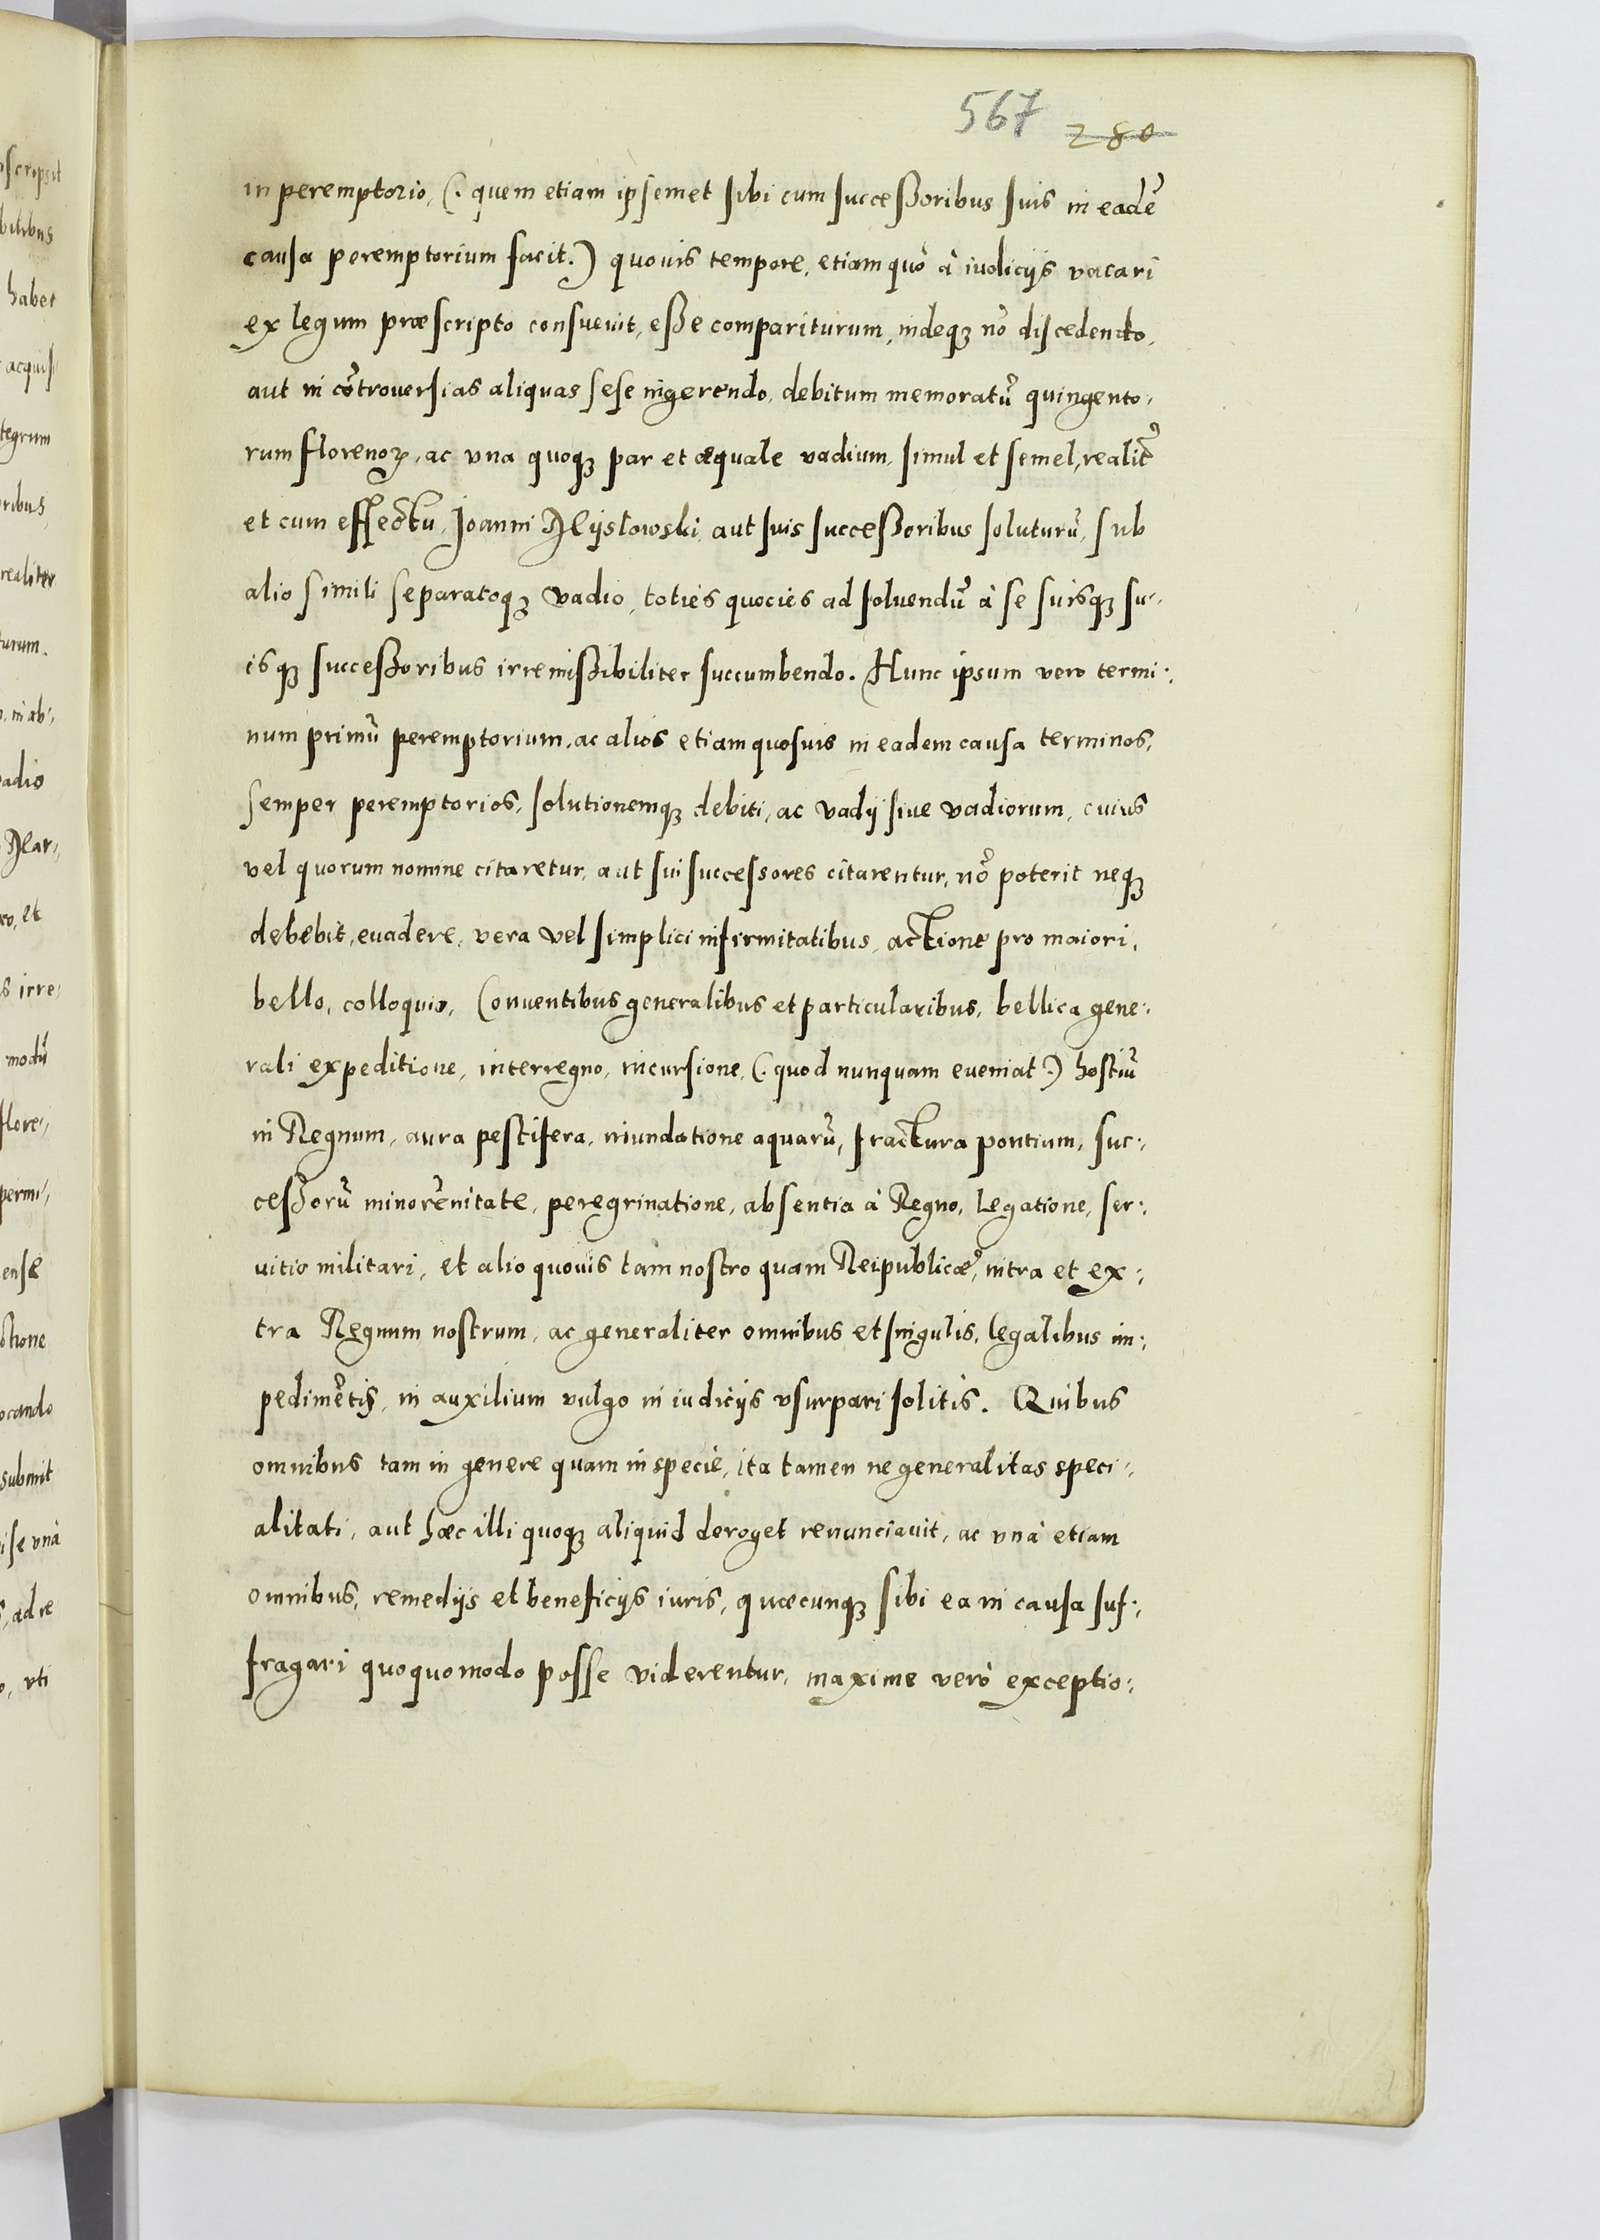 567 280
in peremptorio, (. quem etiam ipsemet sibi cum successoribus suis in eadē
causa peremptorium facit.) quovis tempore, etiam quò à iudicijs vacari
ex legum præscripto consuevit, esse compariturum, indeq̃ nō discedendo,
aut in cōtroversias aliquas sese ingerendo, debitum memoratū quingento,
rum florenoꝝ, ac vna quoq̃ par et æquale vadium, simul et semel, realitẽ
et cum effectu, Joanni Myslowski, aut suis successoribus soluturū, sub
alio simili separatoq̃ vadio, toties quocies ad soluendū à se suisq̃ su,,
isq̃ successoribus irremissibiliter succumbendo. Hunc ipsum vero termi:,
num primū peremptorium, ac alios etiam quosuis in eadem causa terminos,
semper peremptorios, solutionemq̃ debiti, ac vadij siue vadiorum, cuius
vel quorum nomine citaretur, aut sui successores citarentur, nō poterit neq̃
debebit, euadere, vera vel simplici infirmitatibus, actione pro maiori,
bello, colloquio, Conuentibus generalibus et particularibus, bellica gene:,
rali expeditione, interregno, incursione, (. quod nunquam eveniat .) hostiū
in Regnum, aura pestifera, inundatione aquarū, fractura pontium, suc:,
cessorū minorēnitate, peregrinatione, absentia à Regno, Legatione, ser:,
uitio militari, et alio quovis tam nostro quam Reipublicæ, intra et ex:,
tra Regnum nostrum, ac generaliter omnibus et singulis, legalibus im:,
pedimētis, in auxilium vulgo in iudicijs vsurpari solitis. Quibus
omnibus tam in genere quam in specie, ita tamen ne generalitas speci:,
alitati, aut hæc illi quoq̃ aliquid deroget renunciauit, ac vnà etiam
omnibus, remedijs et beneficijs iuris, quæcunq̃ sibi ea in causa suf:,
fragari quoquomodo posse viderentur, maxime verò exceptio:,